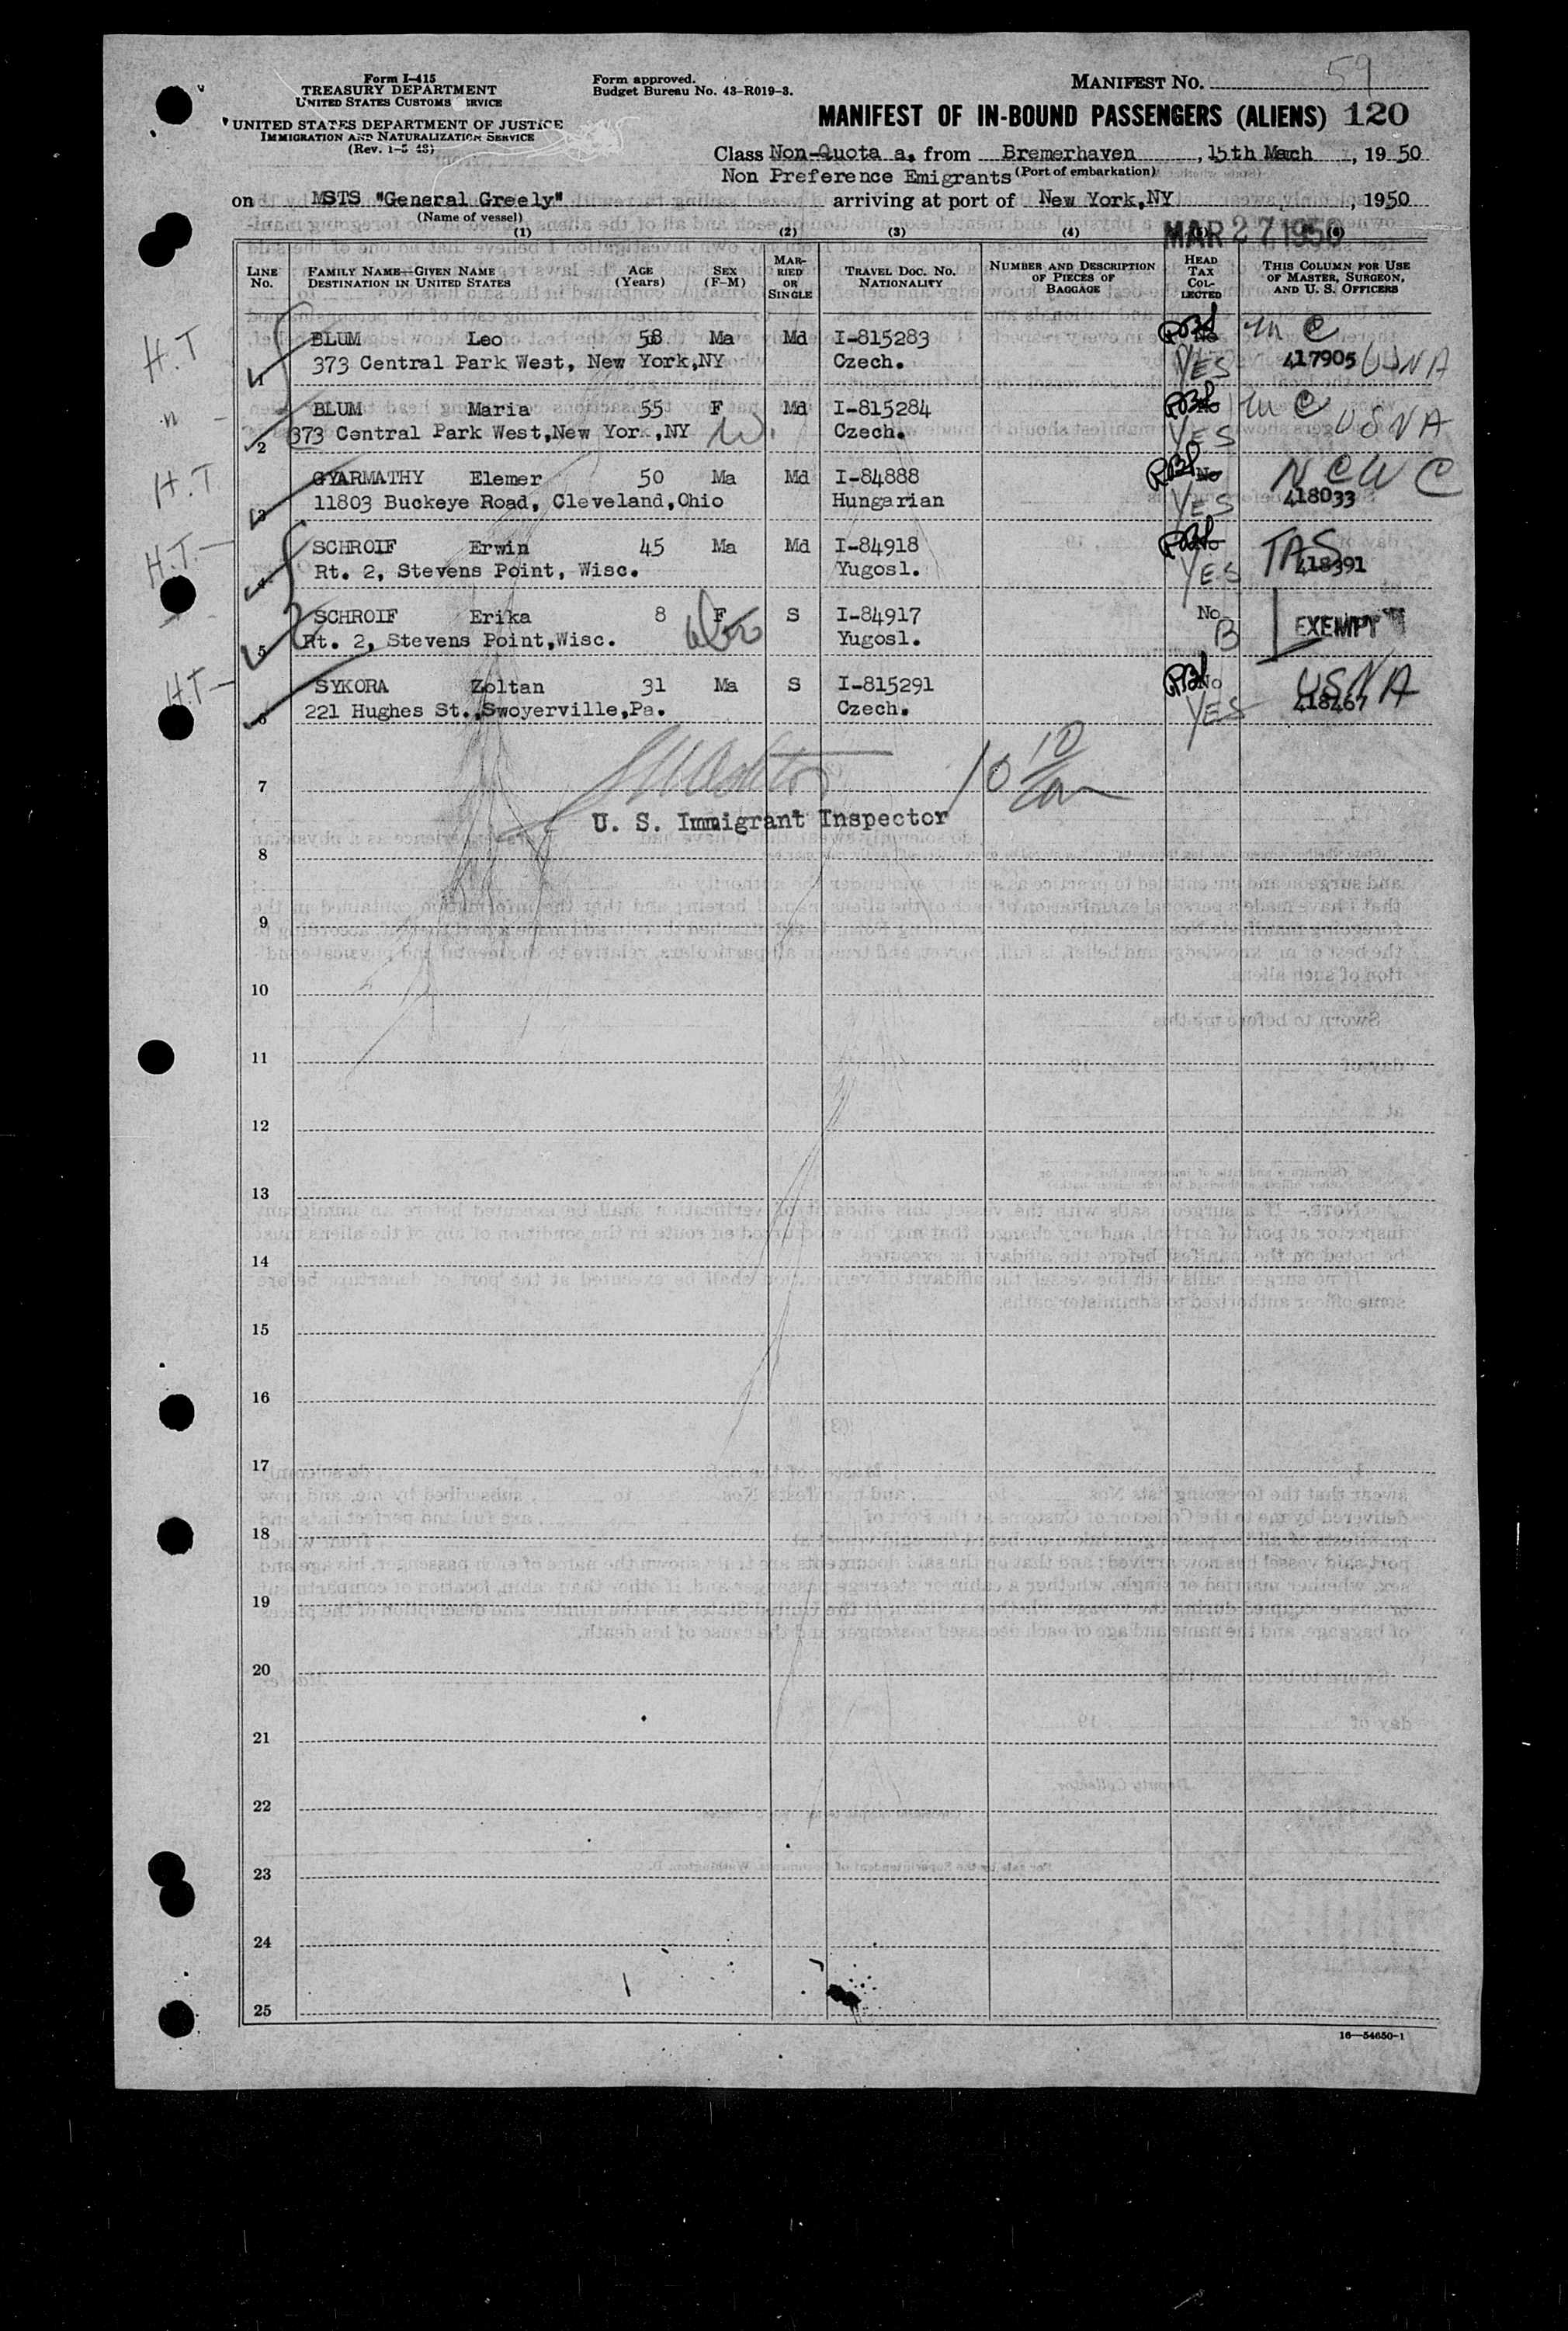 Form I-415
TREASURY DEPARTMENT
UNITED STATES CUSTOMS SERVICE
UNITED STATES DEPARTMENT OF JUSTICE
IMMIGRATION AND NATURALIZATION SERVICE
(Rev. 1-5 48)
Form approved.
Budget Bureau No. 43-R019-3.
MANIFEST NO. 59
MANIFEST OF IN-BOUND PASSENGERS (ALIENS) 120
Class Non-Quota a. from Bremerhaven, 15th March, 1950
Non Preference Emigrants (Port of embarkation)
on MSTS "General Greely" arriving at port of New York,NY, 1950
(Name of vessel)
MAR 27 1950
(1) (2) (3) (4)
LINE No. FAMILY NAME—GIVEN NAME DESTINATION IN UNITED STATES AGE (Years) SEX (F-M) MARRIED OR SINGLE TRAVEL DOC. NO. NATIONALITY NUMBER AND DESCRIPTION OF PIECES OF BAGGAGE HEAD TAX COLLECTED THIS COLUMN FOR USE OF MASTER, SURGEON, AND U. S. OFFICERS
H.T BLUM Leo 58 Ma Md I-815283 No m c
1 373 Central Park West, New York,NY Czech. YES 417905 USNA
BLUM Maria 55 F Md I-815284 No m c
2 373 Central Park West,New York,NY W. Czech. YES USNA
H.T GYARMATHY Elemer 50 Ma Md I-84888 No NCWC
3 11803 Buckeye Road, Cleveland,Ohio Hungarian YES 418033
H.T- SCHROIF Erwin 45 Ma Md I-84918 No TAS
4 Rt. 2, Stevens Point, Wisc. Yugosl. YES 418391
SCHROIF Erika 8 F S I-84917 No
5 Rt. 2, Stevens Point,Wisc. Yugosl. B EXEMPT
H.T- SYKORA Zoltan 31 Ma S I-815291 No USNA
6 221 Hughes St.,Swoyerville,Pa. Czech. YES 418467
7
U. S. Immigrant Inspector
8
9
10
11
12
13
14
15
16
17
18
19
20
21
22
23
24
25
16—54650-1